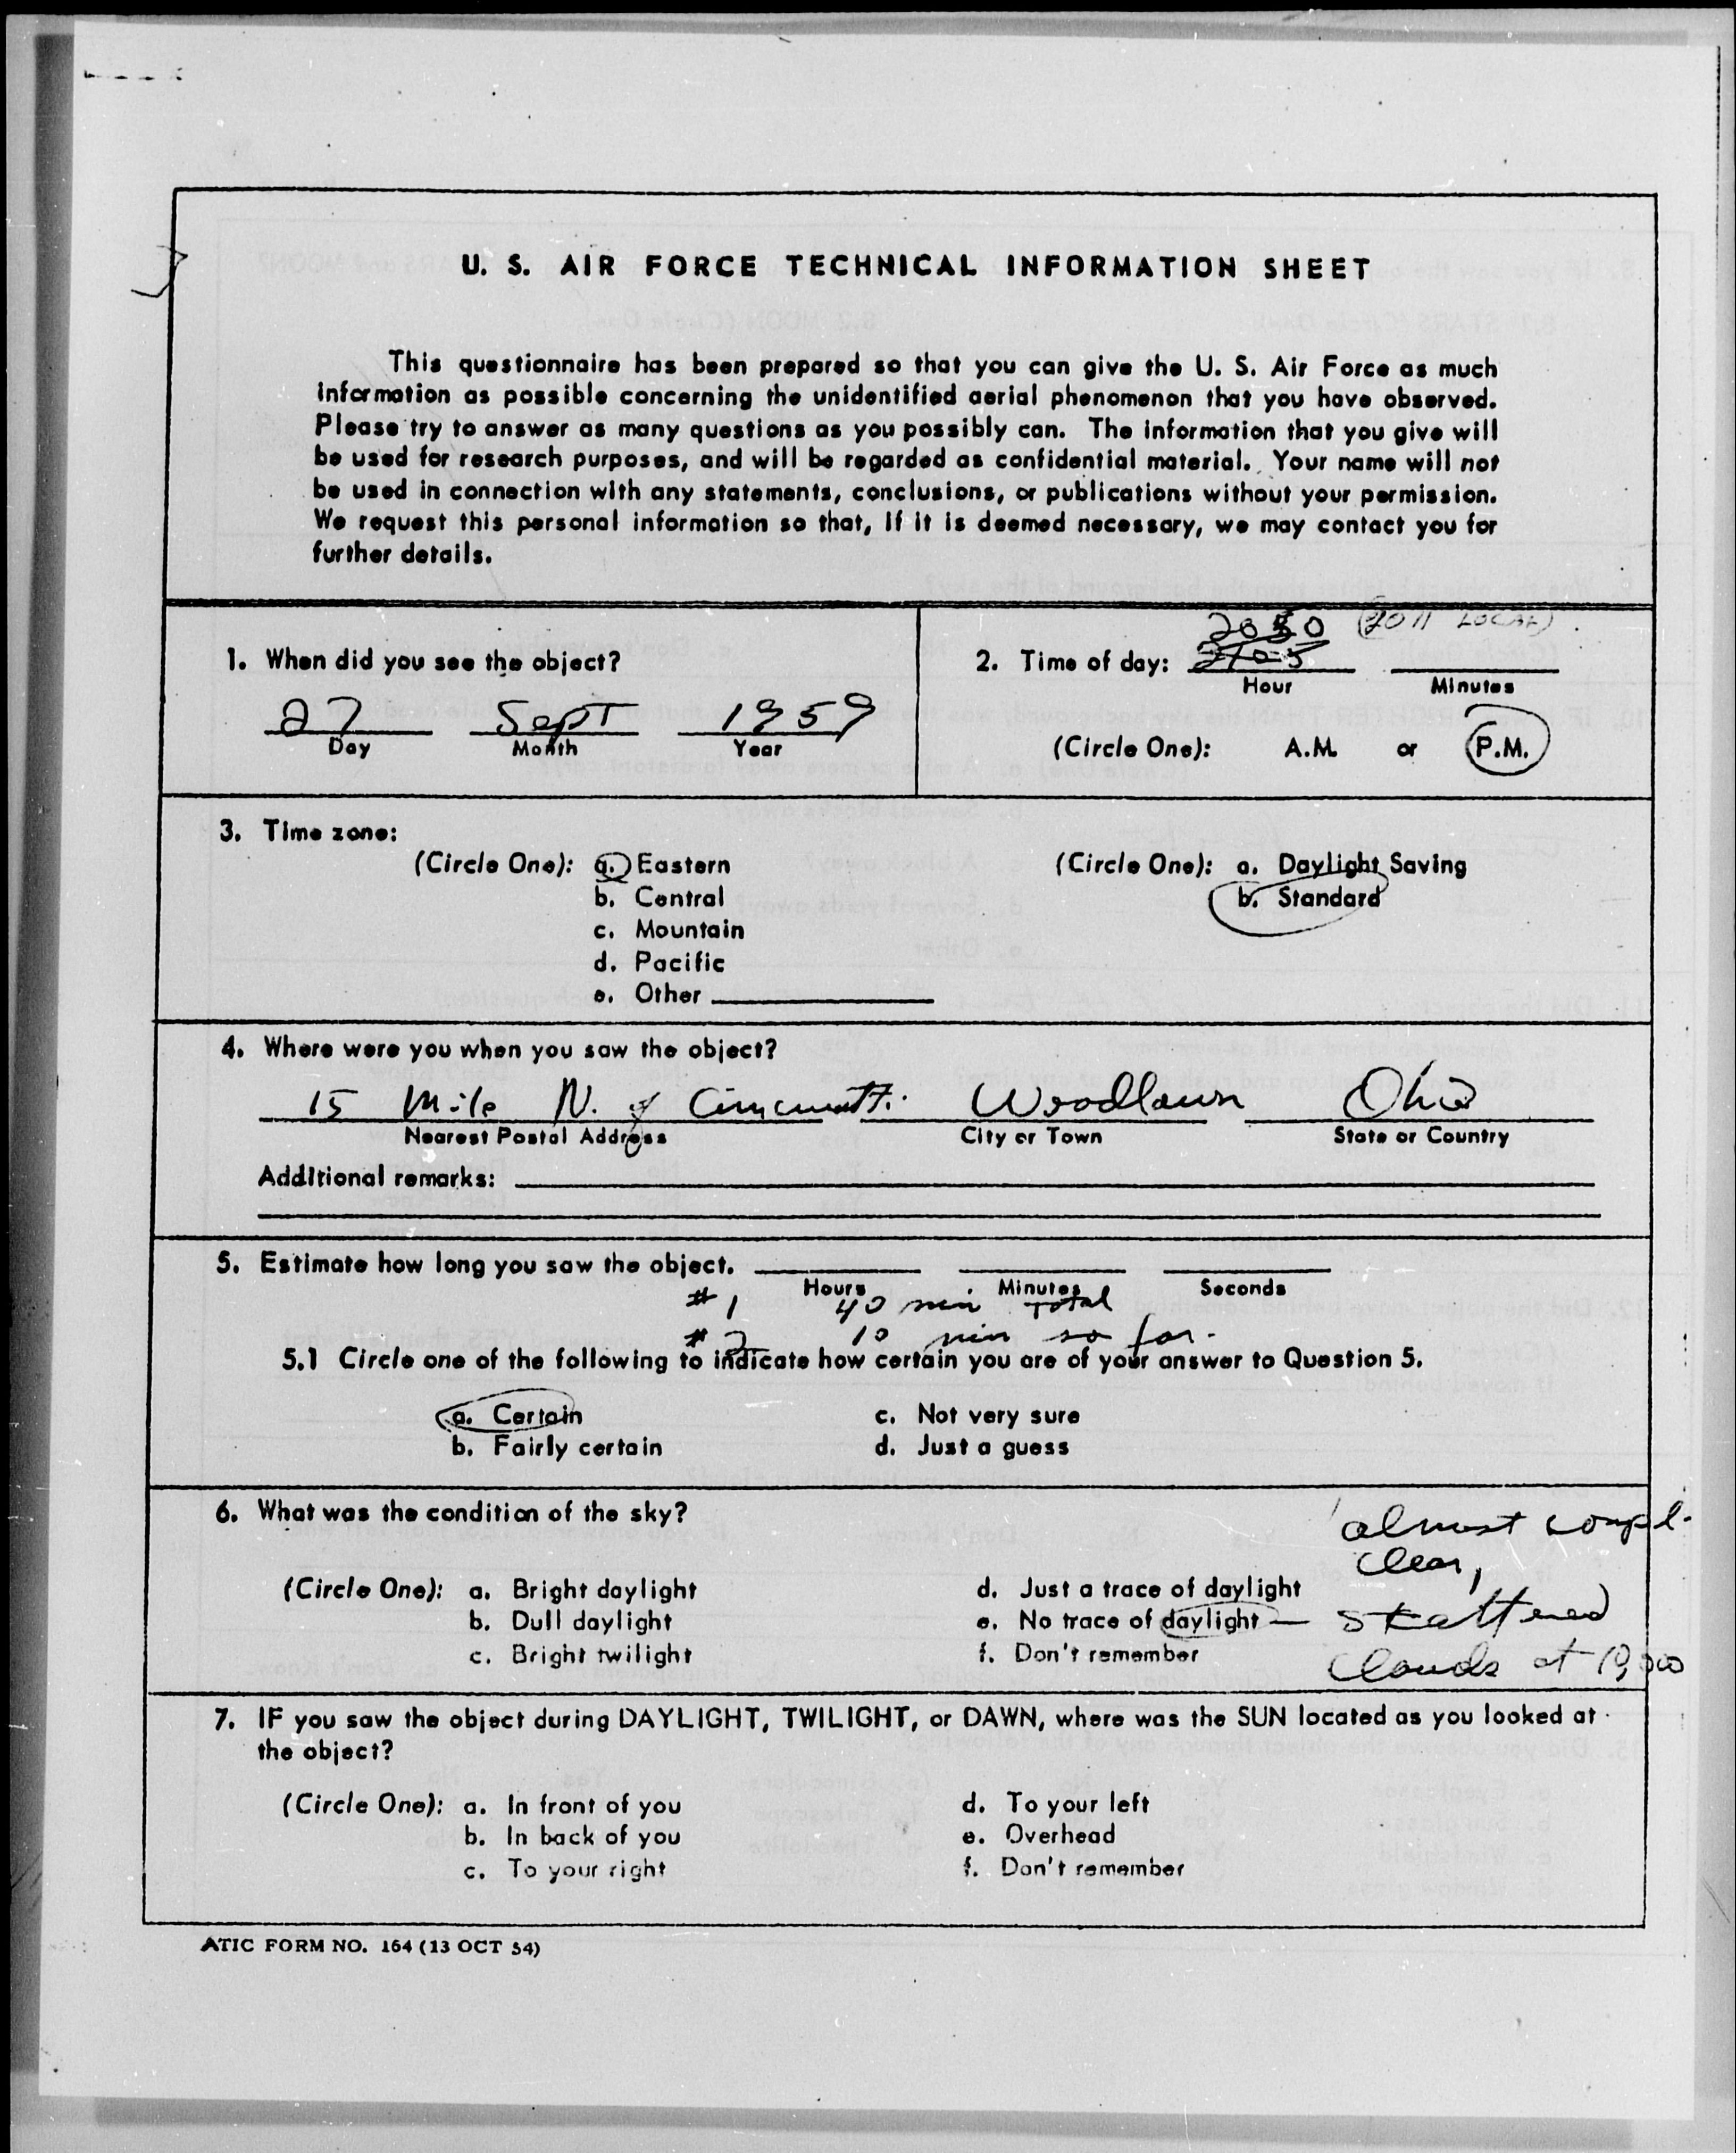 U. S. AIR FORCE TECHNICAL INFORMATION SHEET
This questionnaire has been prepared so that you can give the U. S. Air Force as much
information as possible concerning the unidentified aerial phenomenon that you have observed.
Please try to answer as many questions as you possibly can. The information that you give will
be used for research purposes, and will be regarded as confidential material. Your name will not
be used in connection with any statements, conclusions, or publications without your permission.
We request this personal information so that, if it is deemed necessary, we may contact you for
further details.
1. When did you see the object?
27 Sept 1959
Day Month Year
LOCAL)
2105
2. Time of day:
Hour Minutes
(Circle One): A.M. or P.M.
3. Time zone:
(Circle One): a. Eastern
b. Central
c. Mountain
d. Pacific
e. Other
(Circle One): a. Daylight Saving
b. Standard
4. Where were you when you saw the object?
15 Mile N. of Cincinnatti Woodlawn Ohio
Nearest Postal Address City or Town State or Country
Additional remarks:
5. Estimate how long you saw the object.
Hours Minutes Seconds
#1 40 min total
#2 10 min so far.
5.1 Circle one of the following to indicate how certain you are of your answer to Question 5.
a. Certain
b. Fairly certain
c. Not very sure
d. Just a guess
6. What was the condition of the sky?
almost compl.
clear,
skattered
clouds at
(Circle One): a. Bright daylight
b. Dull daylight
c. Bright twilight
d. Just a trace of daylight
e. No trace of daylight
f. Don't remember
7. IF you saw the object during DAYLIGHT, TWILIGHT, or DAWN, where was the SUN located as you looked at
the object?
(Circle One): a. In front of you
b. In back of you
c. To your right
d. To your left
e. Overhead
f. Don't remember
ATIC FORM NO. 164 (13 OCT 54)